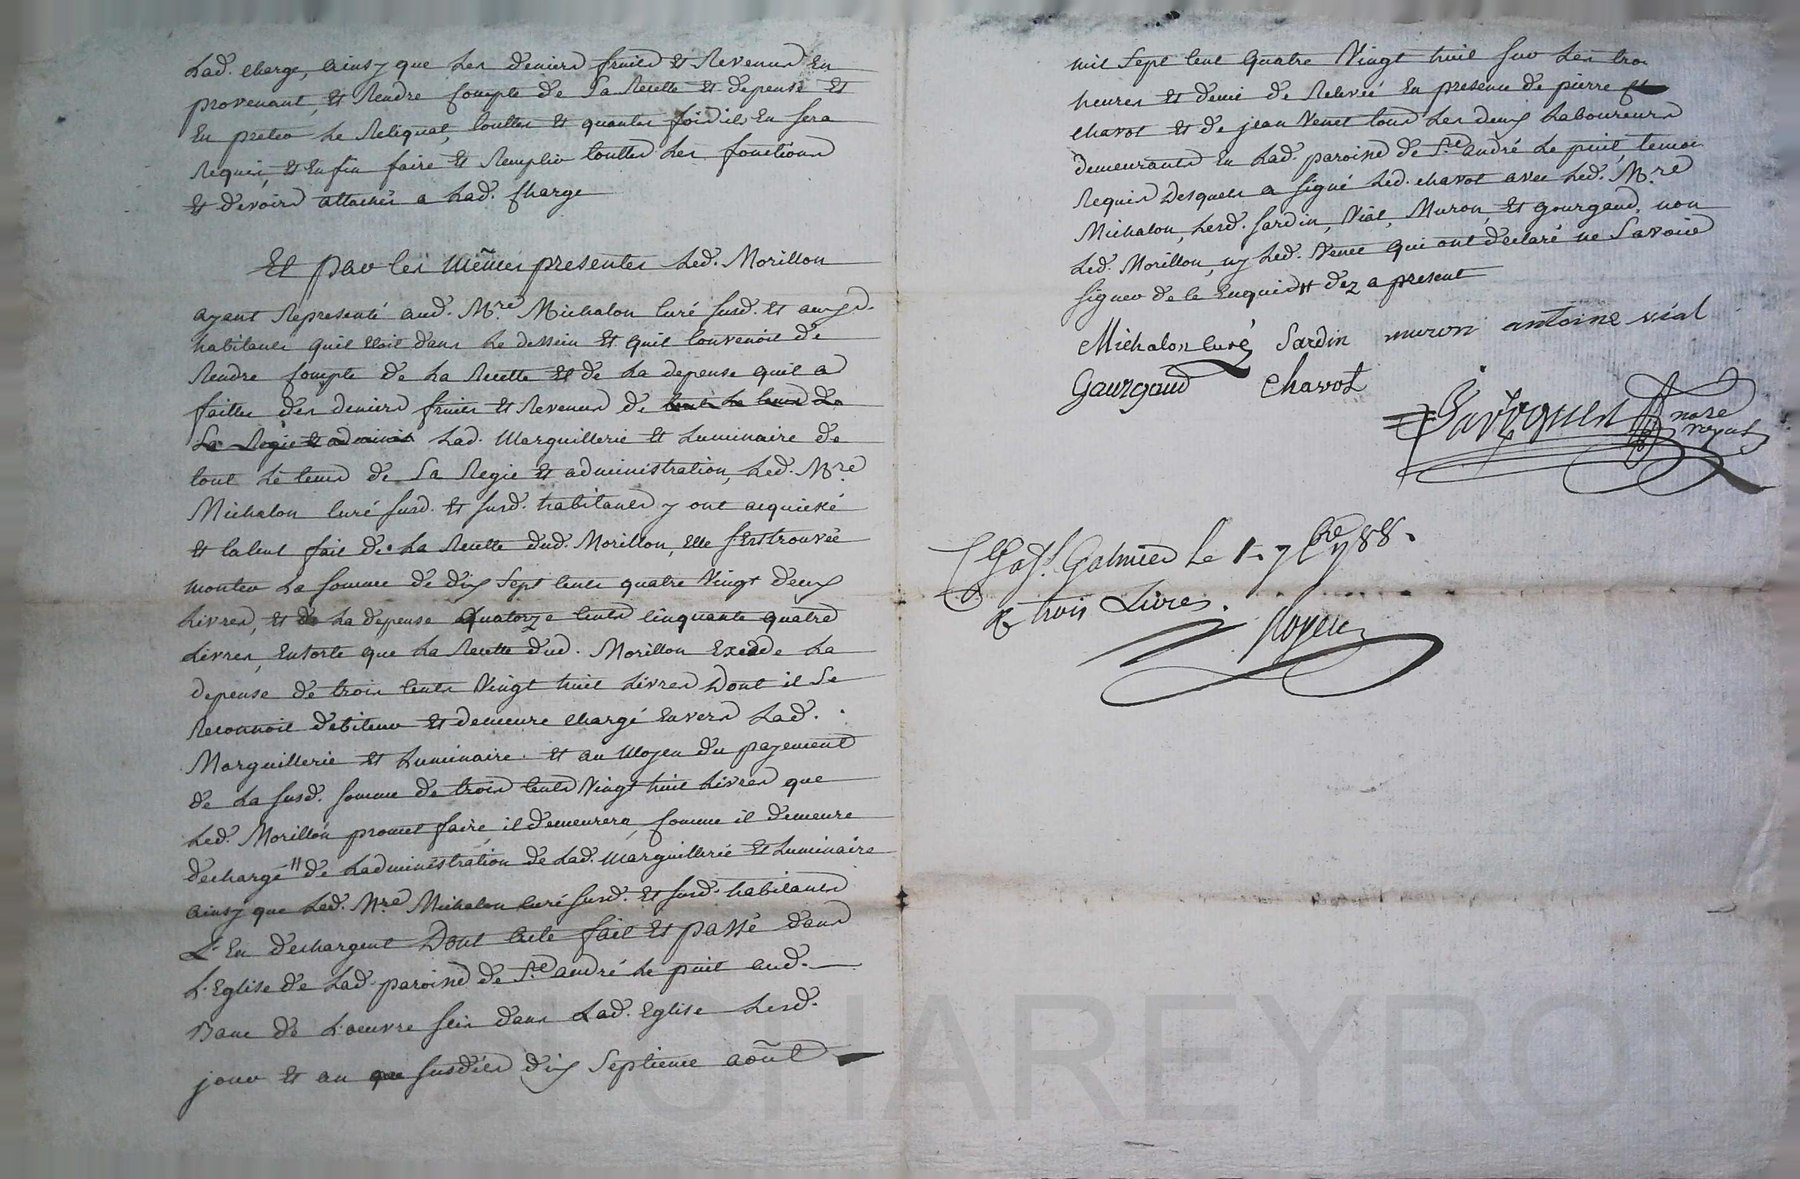 Lad. charge, ainsy que les deniers fruits et Revenus En
provenant, et Rendre Compte de Sa Recette et depense et
En preter Le Reliquat, touttes et quantes fois il En sera
Requis, et Enfin faire et Remplir touttes Les fonctions
et devoirs attachés a Lad. Charge
Et par les mêmes presentes Led. Morillon
ayant Representé aud. Mre Michalon Curé susd. et auxd.
habitants quil Etoit dans Le dessein et quil Convenoit de
Rendre Compte de La Recette et de La depense quil a
faittes des deniers fruits et Revenus de tout Le tems de
La Regie et adminis Lad. Marguillerie et Luminaire de
tout Le tems de Sa Regie et administration, Led. Mre
Michalon Curé susd. et susd. habitants y ont acquiescé
et Calcul fait de La Recette dud. Morillon, elle s'Est trouvée
monter La somme de dix Sept Cents quatre Vingt deux
Livres, et de La depense Quatorze Cents Cinquante quatre
Livres, Ensorte que La Recette dud. Morillon Excede La
depense de trois Cents Vingt huit Livres Dont il Se
Reconnoit debiteur et demeure Chargé Envers Lad.
Marguillerie et Luminaire. et au Moyen du payement
de La susd. somme de trois Cents Vingt huit Livres que
Led. Morillon promet faire, il demeurera, Comme il demeure
dechargé de Ladministration de Lad. Marguillerie et Luminaire
ainsy que Led. Mre Michalon Curé susd. et susd. habitants
L'En dechargent Dont acte fait et passé dans
L'Eglise de Lad. paroisse de St. andré Le puit aud.
Banc de L'oeuvre scis dans Lad. Eglise Lesd.
jour et an que susdits dix Septieme août
mil Sept Cent Quatre Vingt huit sur Les trois
heures et demi de Relevée En presence de pierre
Chavot et de jean Venet tous Les deux Laboureurs
demeurants En Lad. paroisse de St. andré Le puit, temoins
Requis Desquels a signé Led. Chavot avec Led. Mre
Michalon, Lesd. Sardin, Vial, Muron, et Gourgaud, non
Led. Morillon, ny Led. Venet qui ont declaré ne Savoir
signer de ce Enquis dez a present
Michalon Curé Sardin muron antoine vial
Gaurgaud Chavot
nore royal
Galmier Le 1er 7bre 1788.
R trois Livres.
CHAREYRON